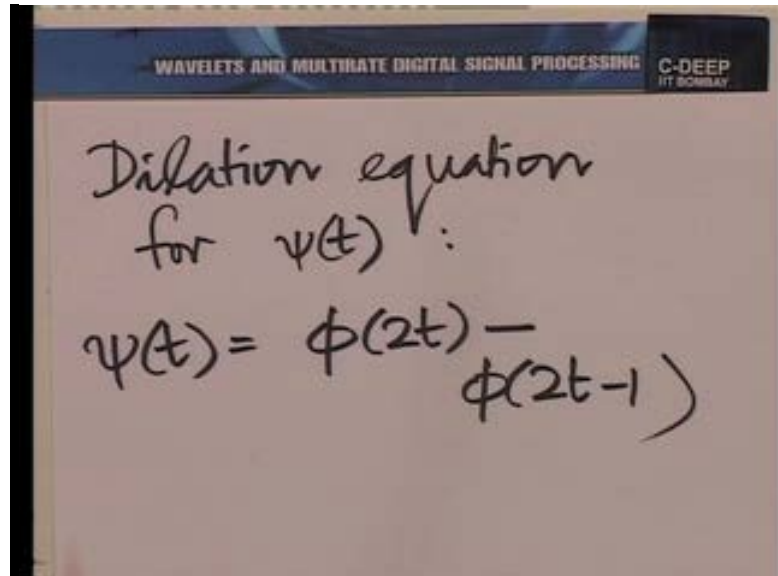 WAVELETS AND MULTIRATE DIGITAL SIGNAL PROCESSING
C-DEEP
IIT BOMBAY
Dilation equation
for ψ(t) :
ψ(t) = φ(2t) −
φ(2t-1)